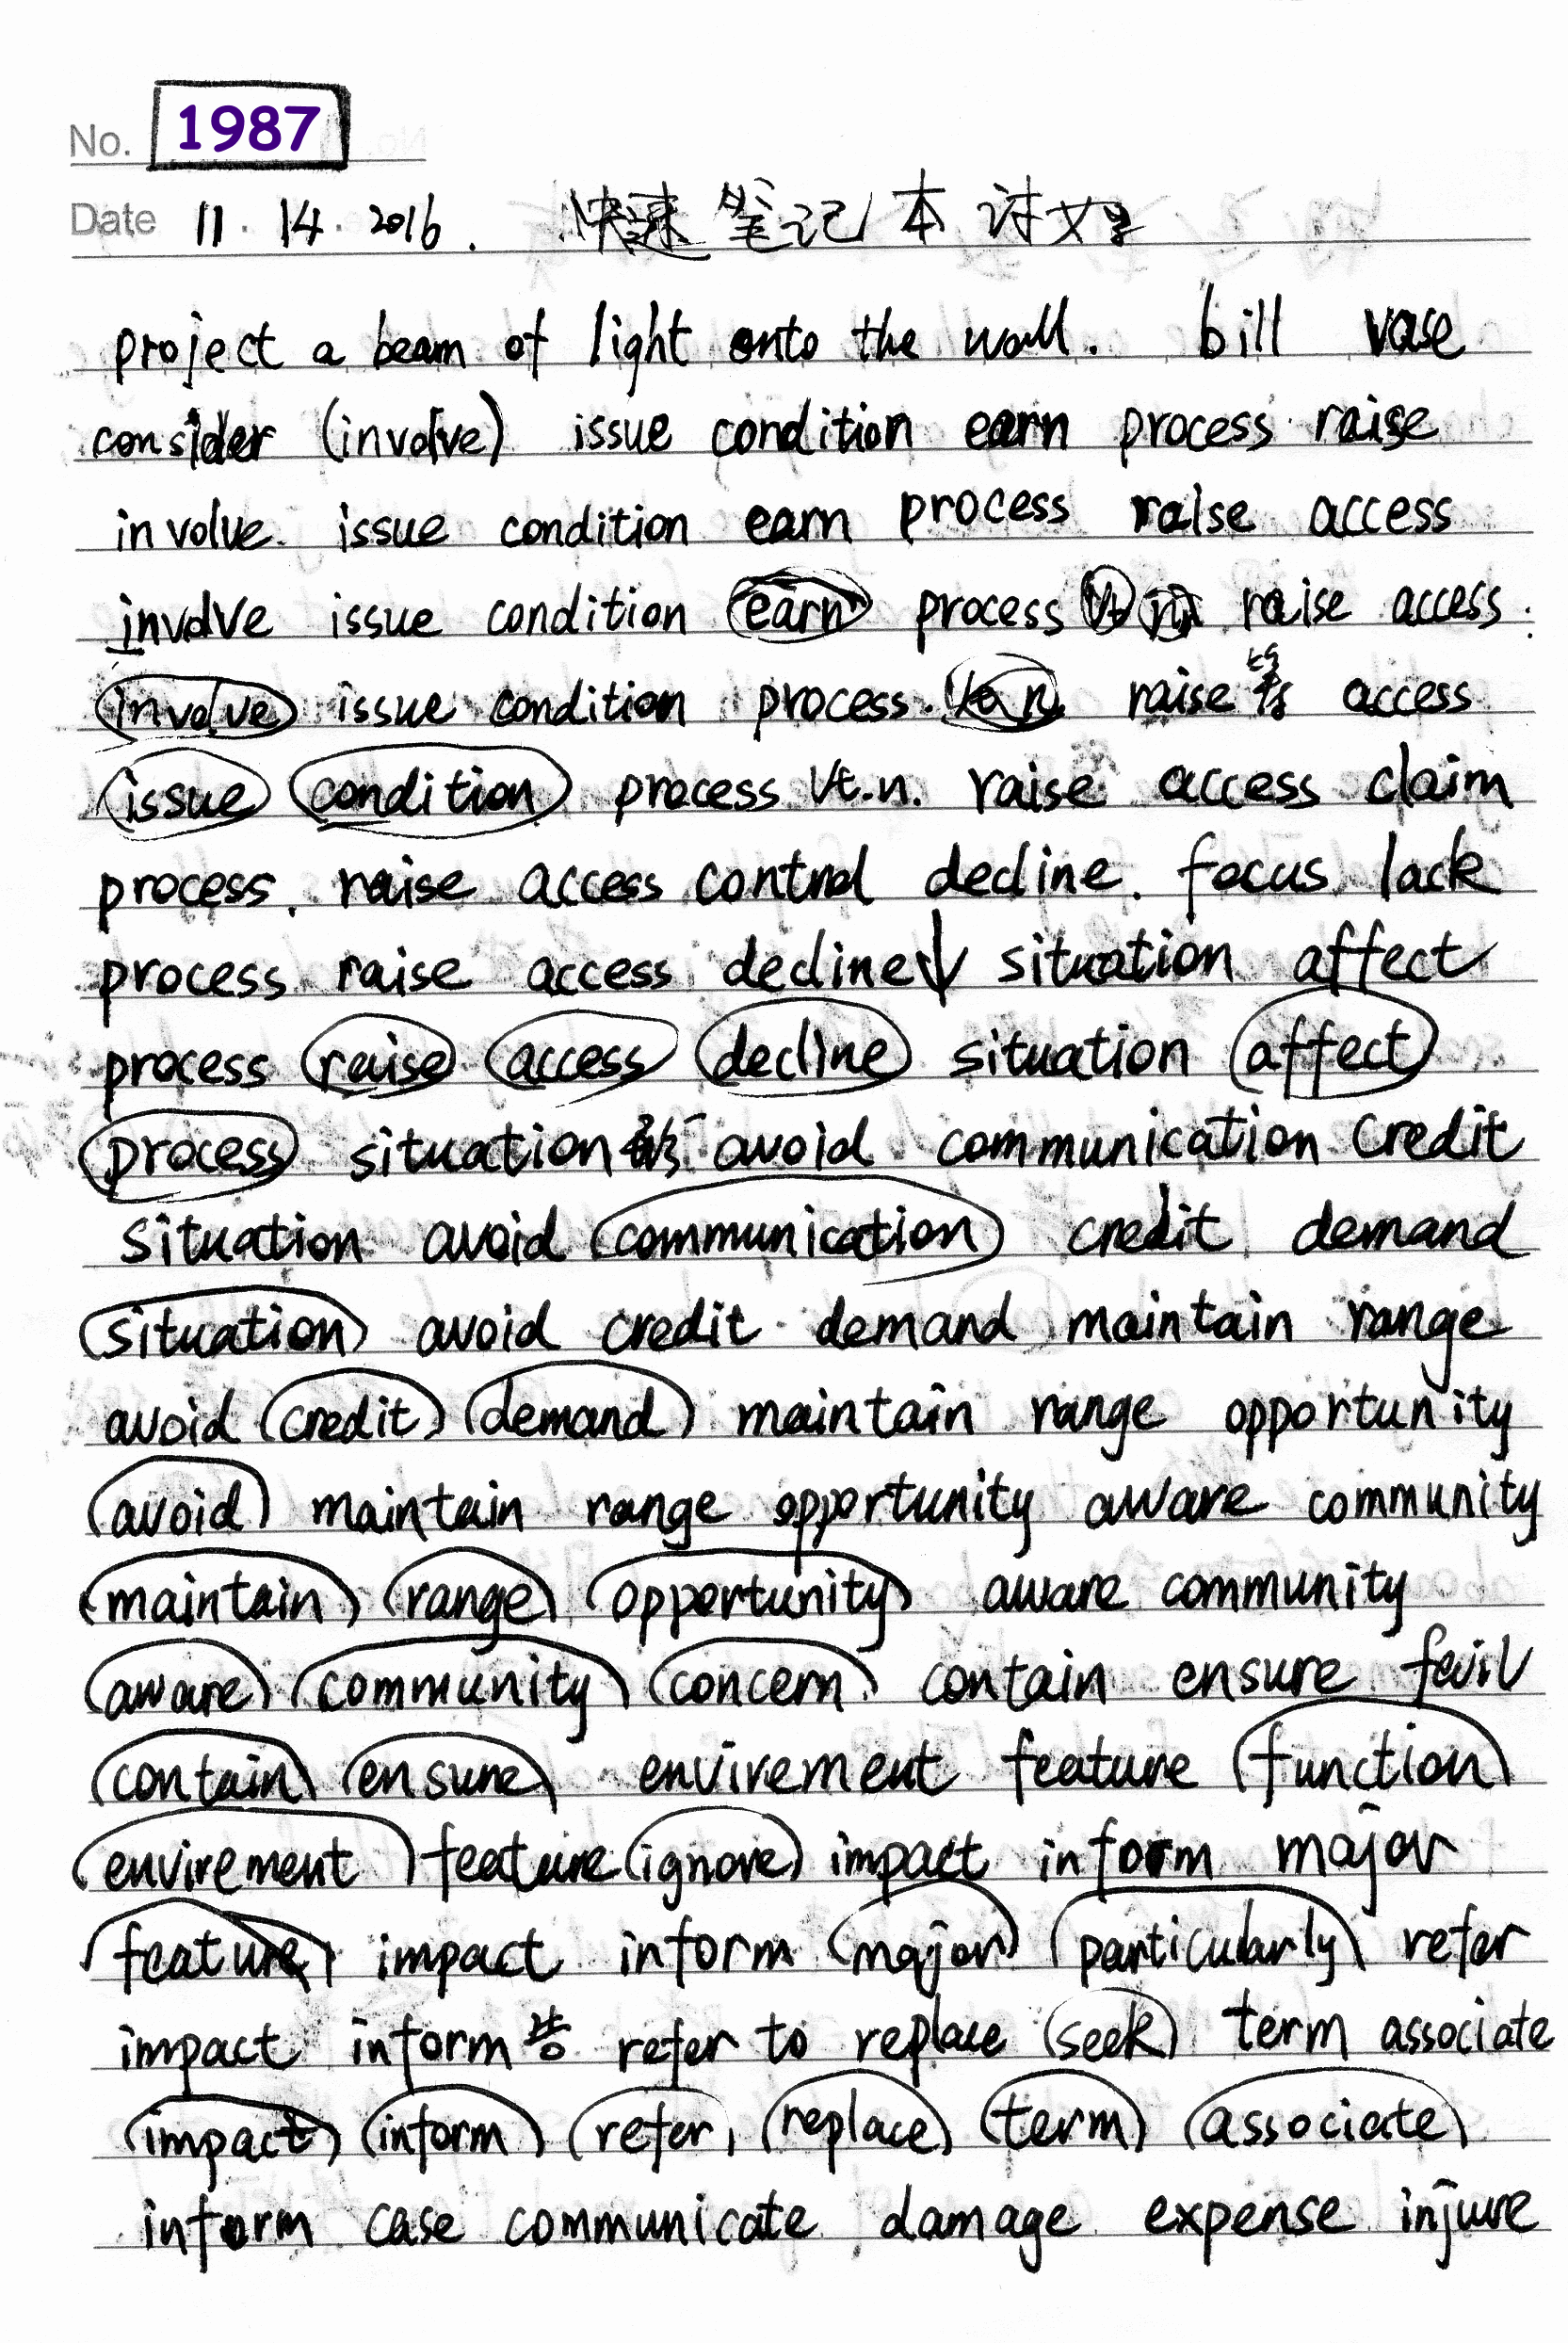 No. 1987
Date 11. 14. 2016. 快速笔记本
project a beam of light onto the wall. bill vase
consider (involve) issue condition earn process raise
involve. issue condition earn process raise access
involve issue condition earn process vt. n. raise access.
involve issue condition process. raise access
issue condition process vt. n. raise access claim
process. raise access control decline. focus lack
process raise access decline↓ situation affect
process raise access decline situation affect
process situation avoid communication credit
situation avoid communication credit demand
situation avoid credit demand maintain range
avoid credit demand maintain range opportunity
avoid maintain range opportunity aware community
maintain range opportunity aware community
aware community concern contain ensure fail
contain ensure envirement feature function
envirement feature ignore impact inform major
feature impact inform major particularly refer
impact inform refer to replace seek term associate
impact inform refer, replace term associate
inform case communicate damage expense injure